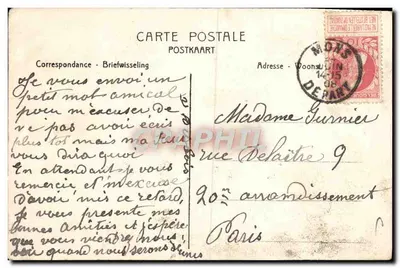 CARTE POSTALE
POSTKAART
Correspondance - Briefwisseling
Adresse - Woonst
MONS
JUIN
14-15
08
DEPART
Je vous envoi un
petit mot amical
pour m'excuser de
ne pas avoir écris
plus tot mais ma
vous dira quoi
En attendant je vous
remercie et m'excuse
D'avoir mis ce retard,
Je vous presente mes
bonnes Amitiés et j'espère
que vous viendrez nous
voir quand nous serons
Madame Gurnier
rue Delaître 9
20me arrondissement
Paris